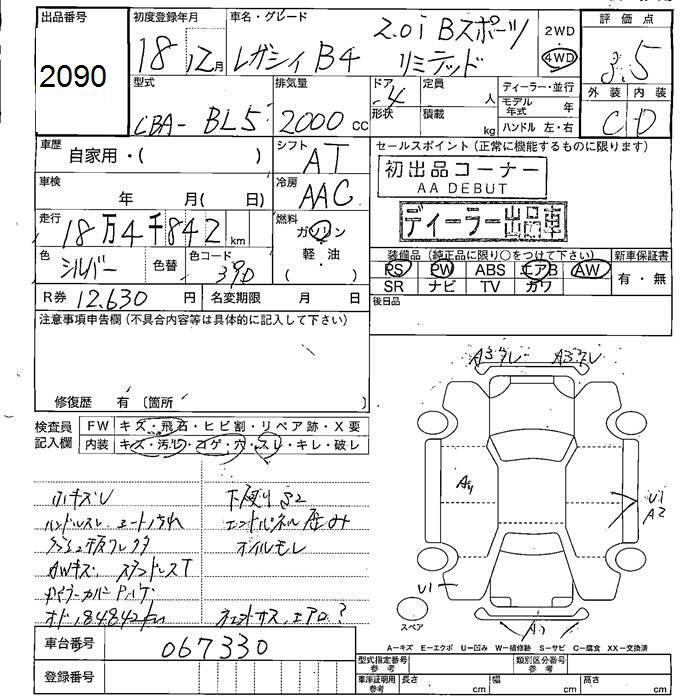 出品番号
2090
初度登録年月
18 12月
車名・グレード
レガシィ B4
2.0i Bスポーツ
リミテッド
2WD
4WD
評価点
3.5
外装 内装
C D
型式
CBA- BL5
排気量
2000 cc
ドア 4
形状
定員 人
積載 kg
ディーラー・並行
モデル年式 年
ハンドル 左・右
車歴
自家用・( )
シフト
AT
車検
年 月( 日)
冷房
AAC
走行
18万4千842 km
燃料
ガソリン
軽・油
( )
色
シルバー
色替
色コード
39D
R券 12,630 円
名変期限 月 日
セールスポイント (正常に機能するものに限ります)
初出品コーナー
AA DEBUT
ディーラー出品車
装備品 (純正品に限り○をつけて下さい)
PS PW ABS エアB AW
SR ナビ TV カワ
新車保証書
有・無
後日品
注意事項申告欄 (不具合内容等は具体的に記入して下さい)
修復歴 有 (箇所 )
検査員
記入欄
FW キズ・飛石・ヒビ割・リペア跡・X要
内装 キズ・汚れ・コゲ・穴・スレ・キレ・破レ
ハンドルスレ シート汚れ
AWキズ
オド 184842km
下廻りS2
エンドパネル歪み
オイルモレ
A3 A3
A4
U1
A2
U1
スペア
A-キズ E-エクボ U-凹み W-補修跡 S-サビ C-腐食 XX-交換済
車台番号
067330
登録番号
型式指定番号
参考
類別区分番号
参考
車庫証明用
参考
長さ cm
幅 cm
高さ cm